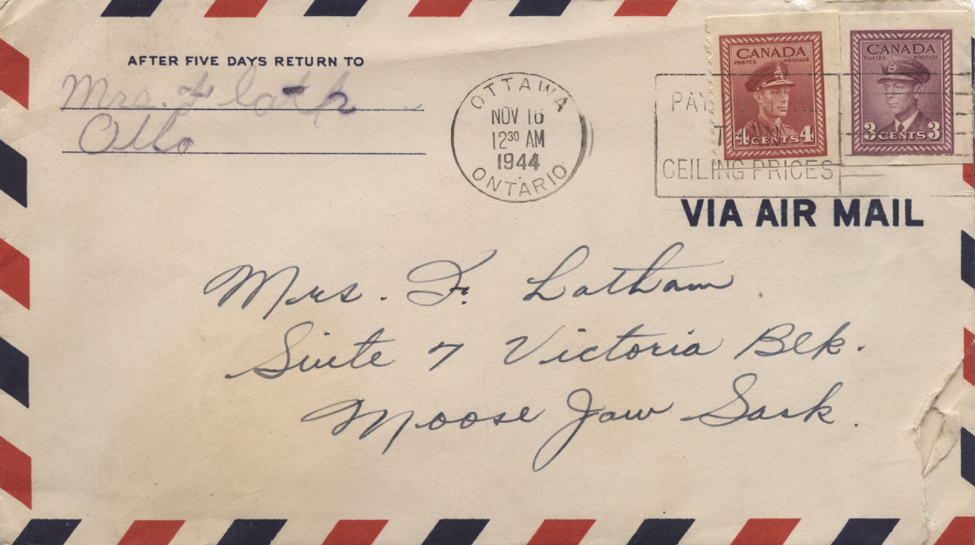 AFTER FIVE DAYS RETURN TO
Mrs.
OTTAWA
NOV 16
12³⁰ AM
1944
ONTARIO
PAY
CEILING PRICES
CANADA
POSTES POSTAGE
4 CENTS 4
CANADA
POSTES POSTAGE
3 CENTS 3
VIA AIR MAIL
Mrs. F. Latham
Suite 7 Victoria Blk.
Moose Jaw Sask.